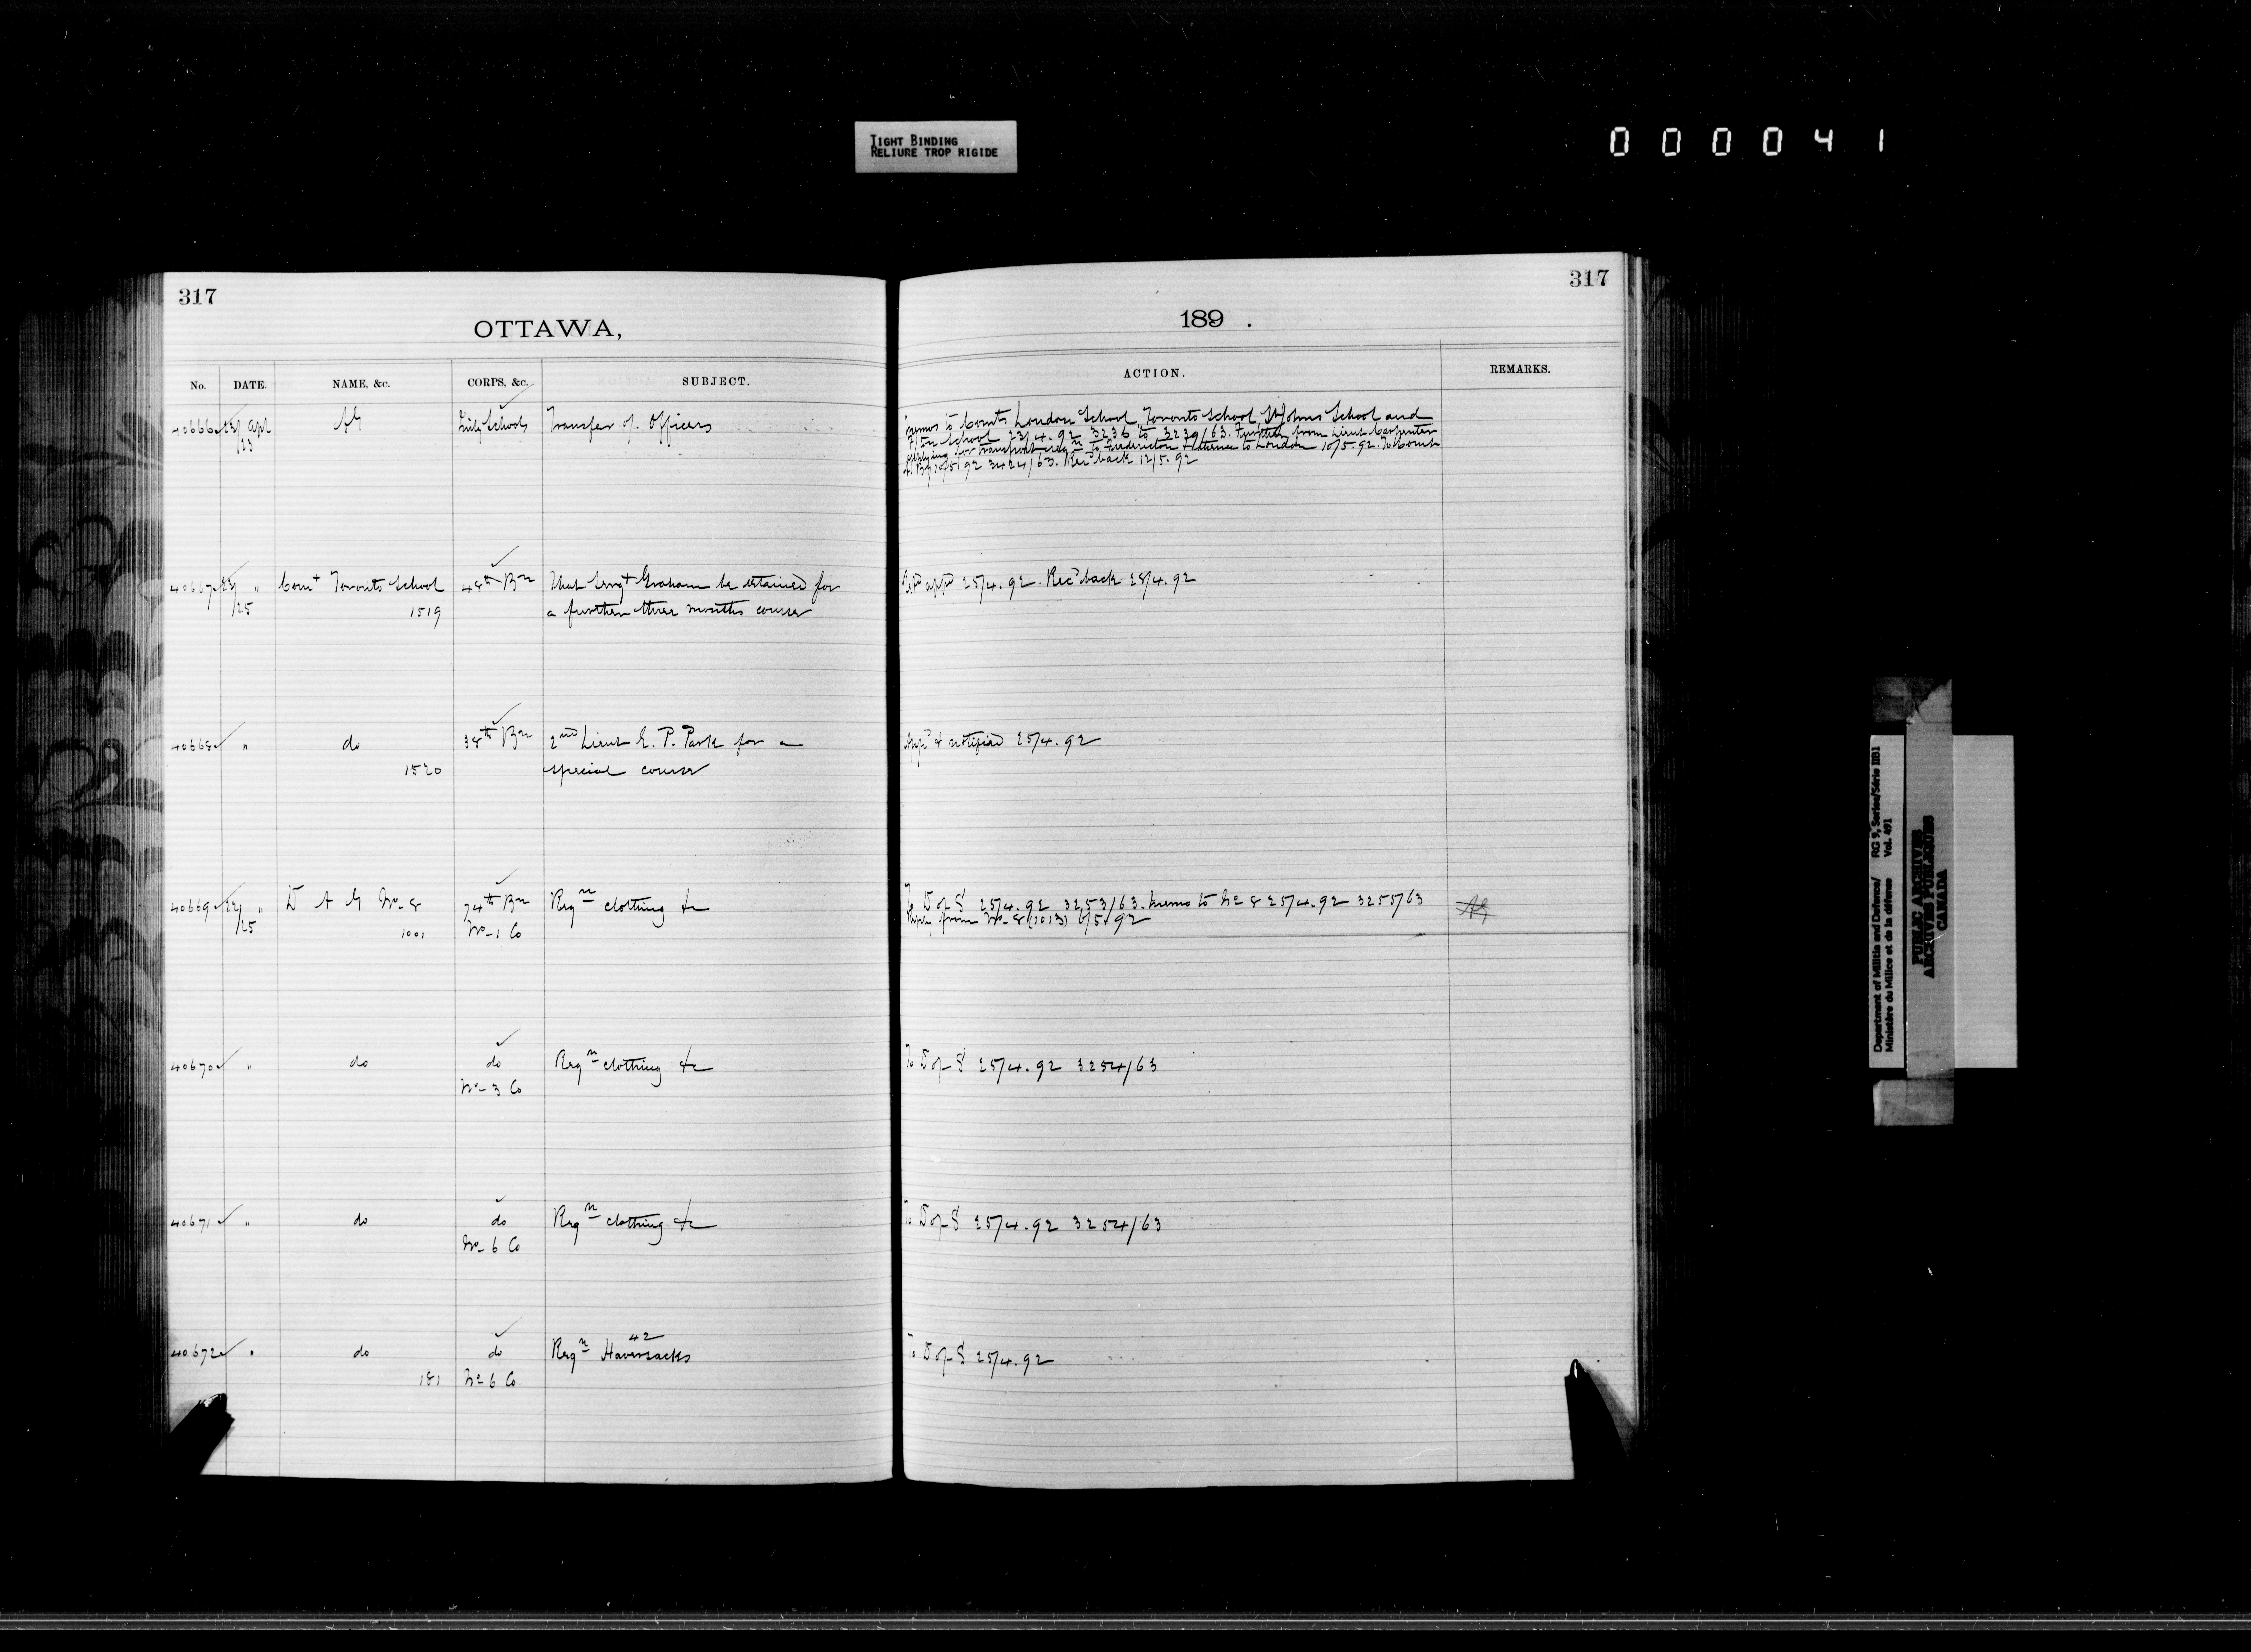 TIGHT BINDING
RELIURE TROP RIGIDE
000041
317
OTTAWA,
No. DATE. NAME, &c. CORPS, &c. SUBJECT.
40666 23 Apl AG Inf Schools Transfer of Officers
/23
40667 23 " Com't Toronto School 48th Bn That Sergt Graham be attained for
/25 1519 a further three months course
40668 " do 38th Bn 2nd Lieut E. P. Park for a
1520 special course
40669 23 " D A G No 8 74th Bn Reqn clothing &c
/25 1001 No 1 Co
40670 " do do Reqn clothing &c
No 3 Co
40671 " do do Reqn clothing &c
No 6 Co
42
40672 " do do Reqn Haversacks
181 No 6 Co
317
189 .
ACTION. REMARKS.
Memos to Comts London School, Toronto School, St Johns School and
F'ton School 23/4.92 3236 to 3239/63. Further from Lieut Carpenter
applying for transport to Fredericton & thence to London 10/5.92. To Comt
10/5/92 3424/63. Rec'd back 12/5.92
app'd 25/4.92. Rec'd back 28/4.92
App'd & notified 25/4.92
To D of S 25/4.92 3253/63. Memo to No 8 25/4.92 3255/63
Reply from No 8 (1013) 6/5/92
To D of S 25/4.92 3254/63
To D of S 25/4.92 3254/63
To D of S 25/4.92
Department of Militia and Defence/ RG 9, Series/Série IIB1
Ministère du Milice et de la défense Vol. 491
PUBLIC ARCHIVES
ARCHIVES PUBLIQUES
CANADA